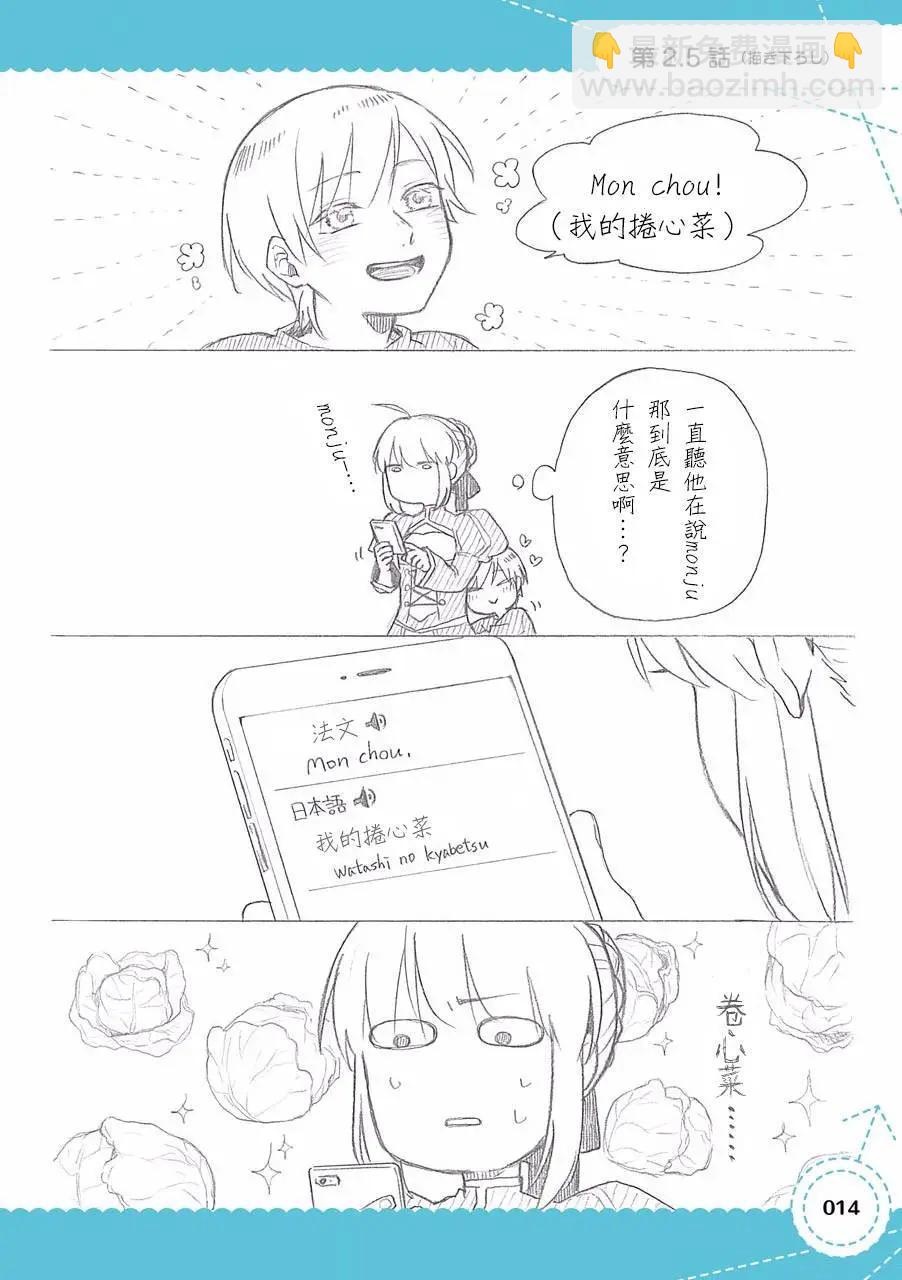 最新免費漫畫
第 2.5 話（描き下ろし）
www.baozimh.com
Mon chou!
（我的捲心菜）
一直聽他在說monju
那到底是
什麼意思啊…？
monju—…
法文
Mon chou.
日本語
我的捲心菜
watashi no kyabetsu
卷心菜……
014